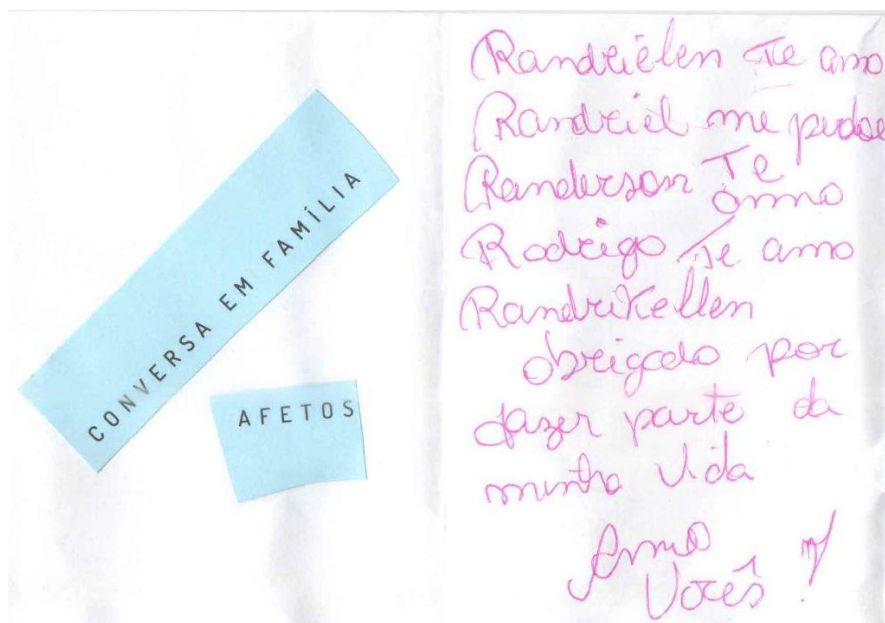 CONVERSA EM FAMÍLIA
AFETOS
Randrielen Te amo
Randriel me perdoe
Randerson Te
ammo
Rodrigo Te amo
Randrikellen
obrigado por
fazer parte da
minha vida
Amo
Vocês !